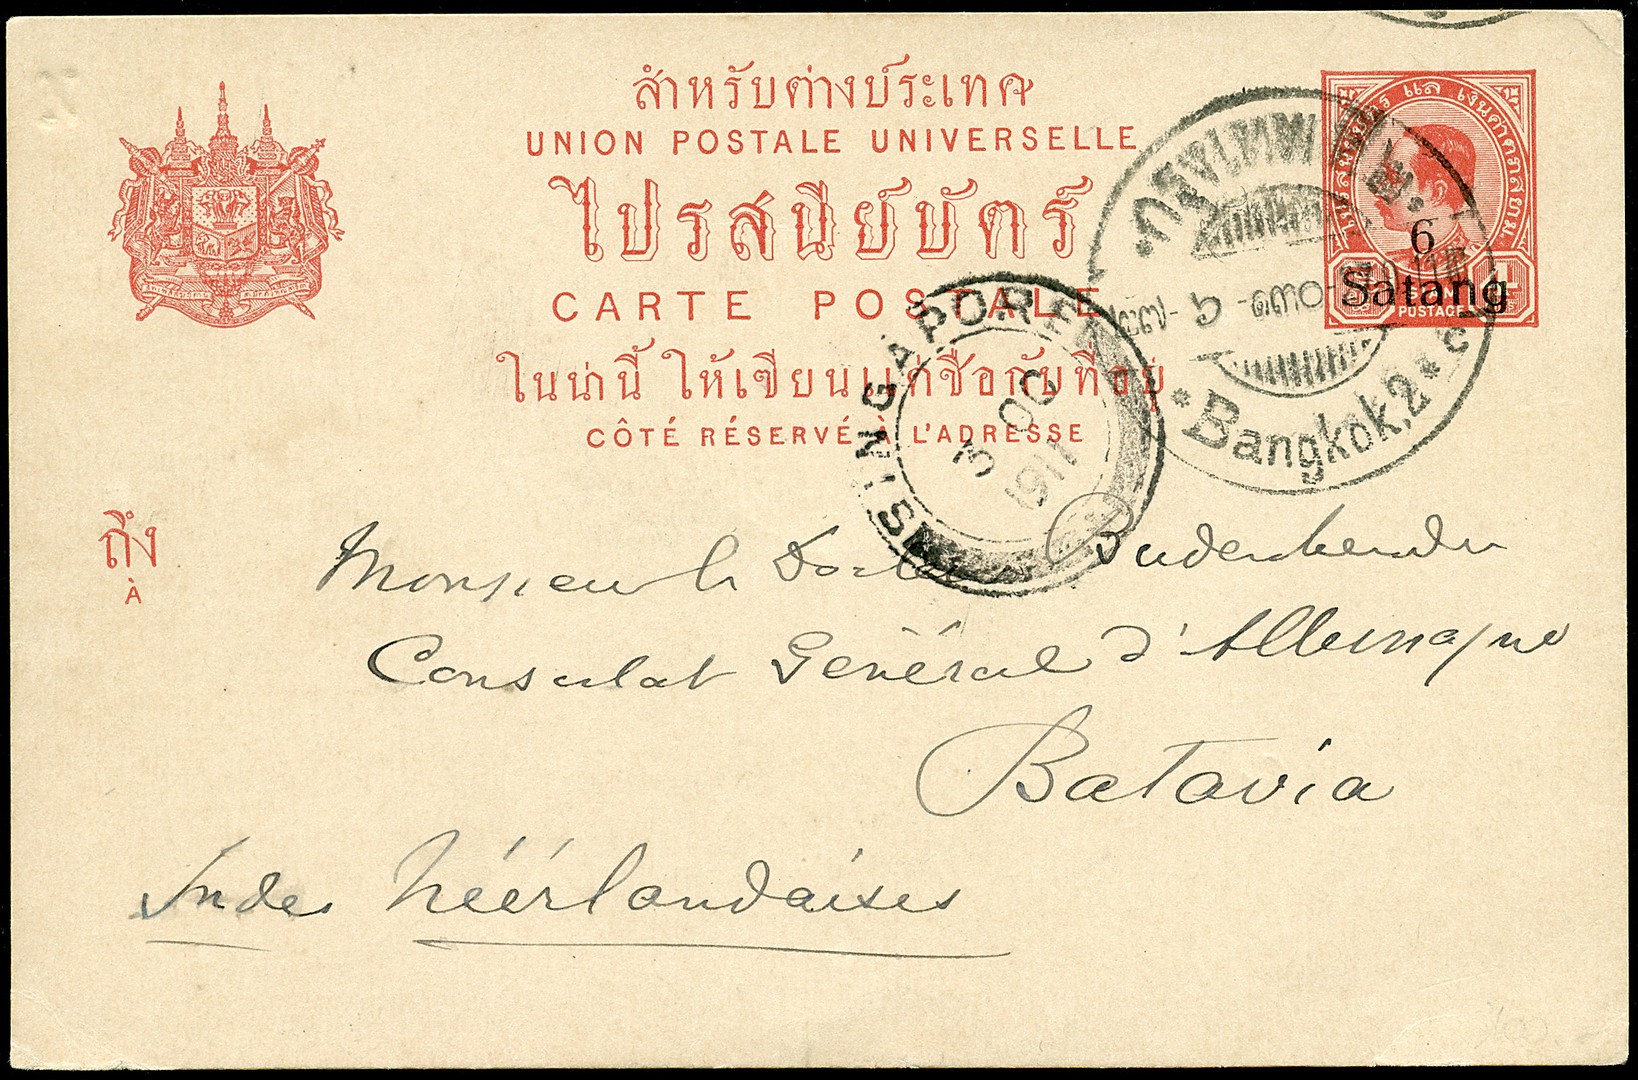 สำหรับต่างประเทศ
UNION POSTALE UNIVERSELLE
ไปรสนียบัตร์
CARTE POSTALE
ในน่านี้ ให้เขียนแต่ชื่อกับที่อยู่
CÔTÉ RÉSERVÉ À L'ADRESSE
6
Satang
POSTAGE
กรุงเทพ
๒๗-๖-๑๓๐
Bangkok, 2
SINGAPORE
3 OC
1911
ถึง
À
Monsieur le Docteur
Consulat Général d'Allemagne
Batavia
Indes Néérlandaises